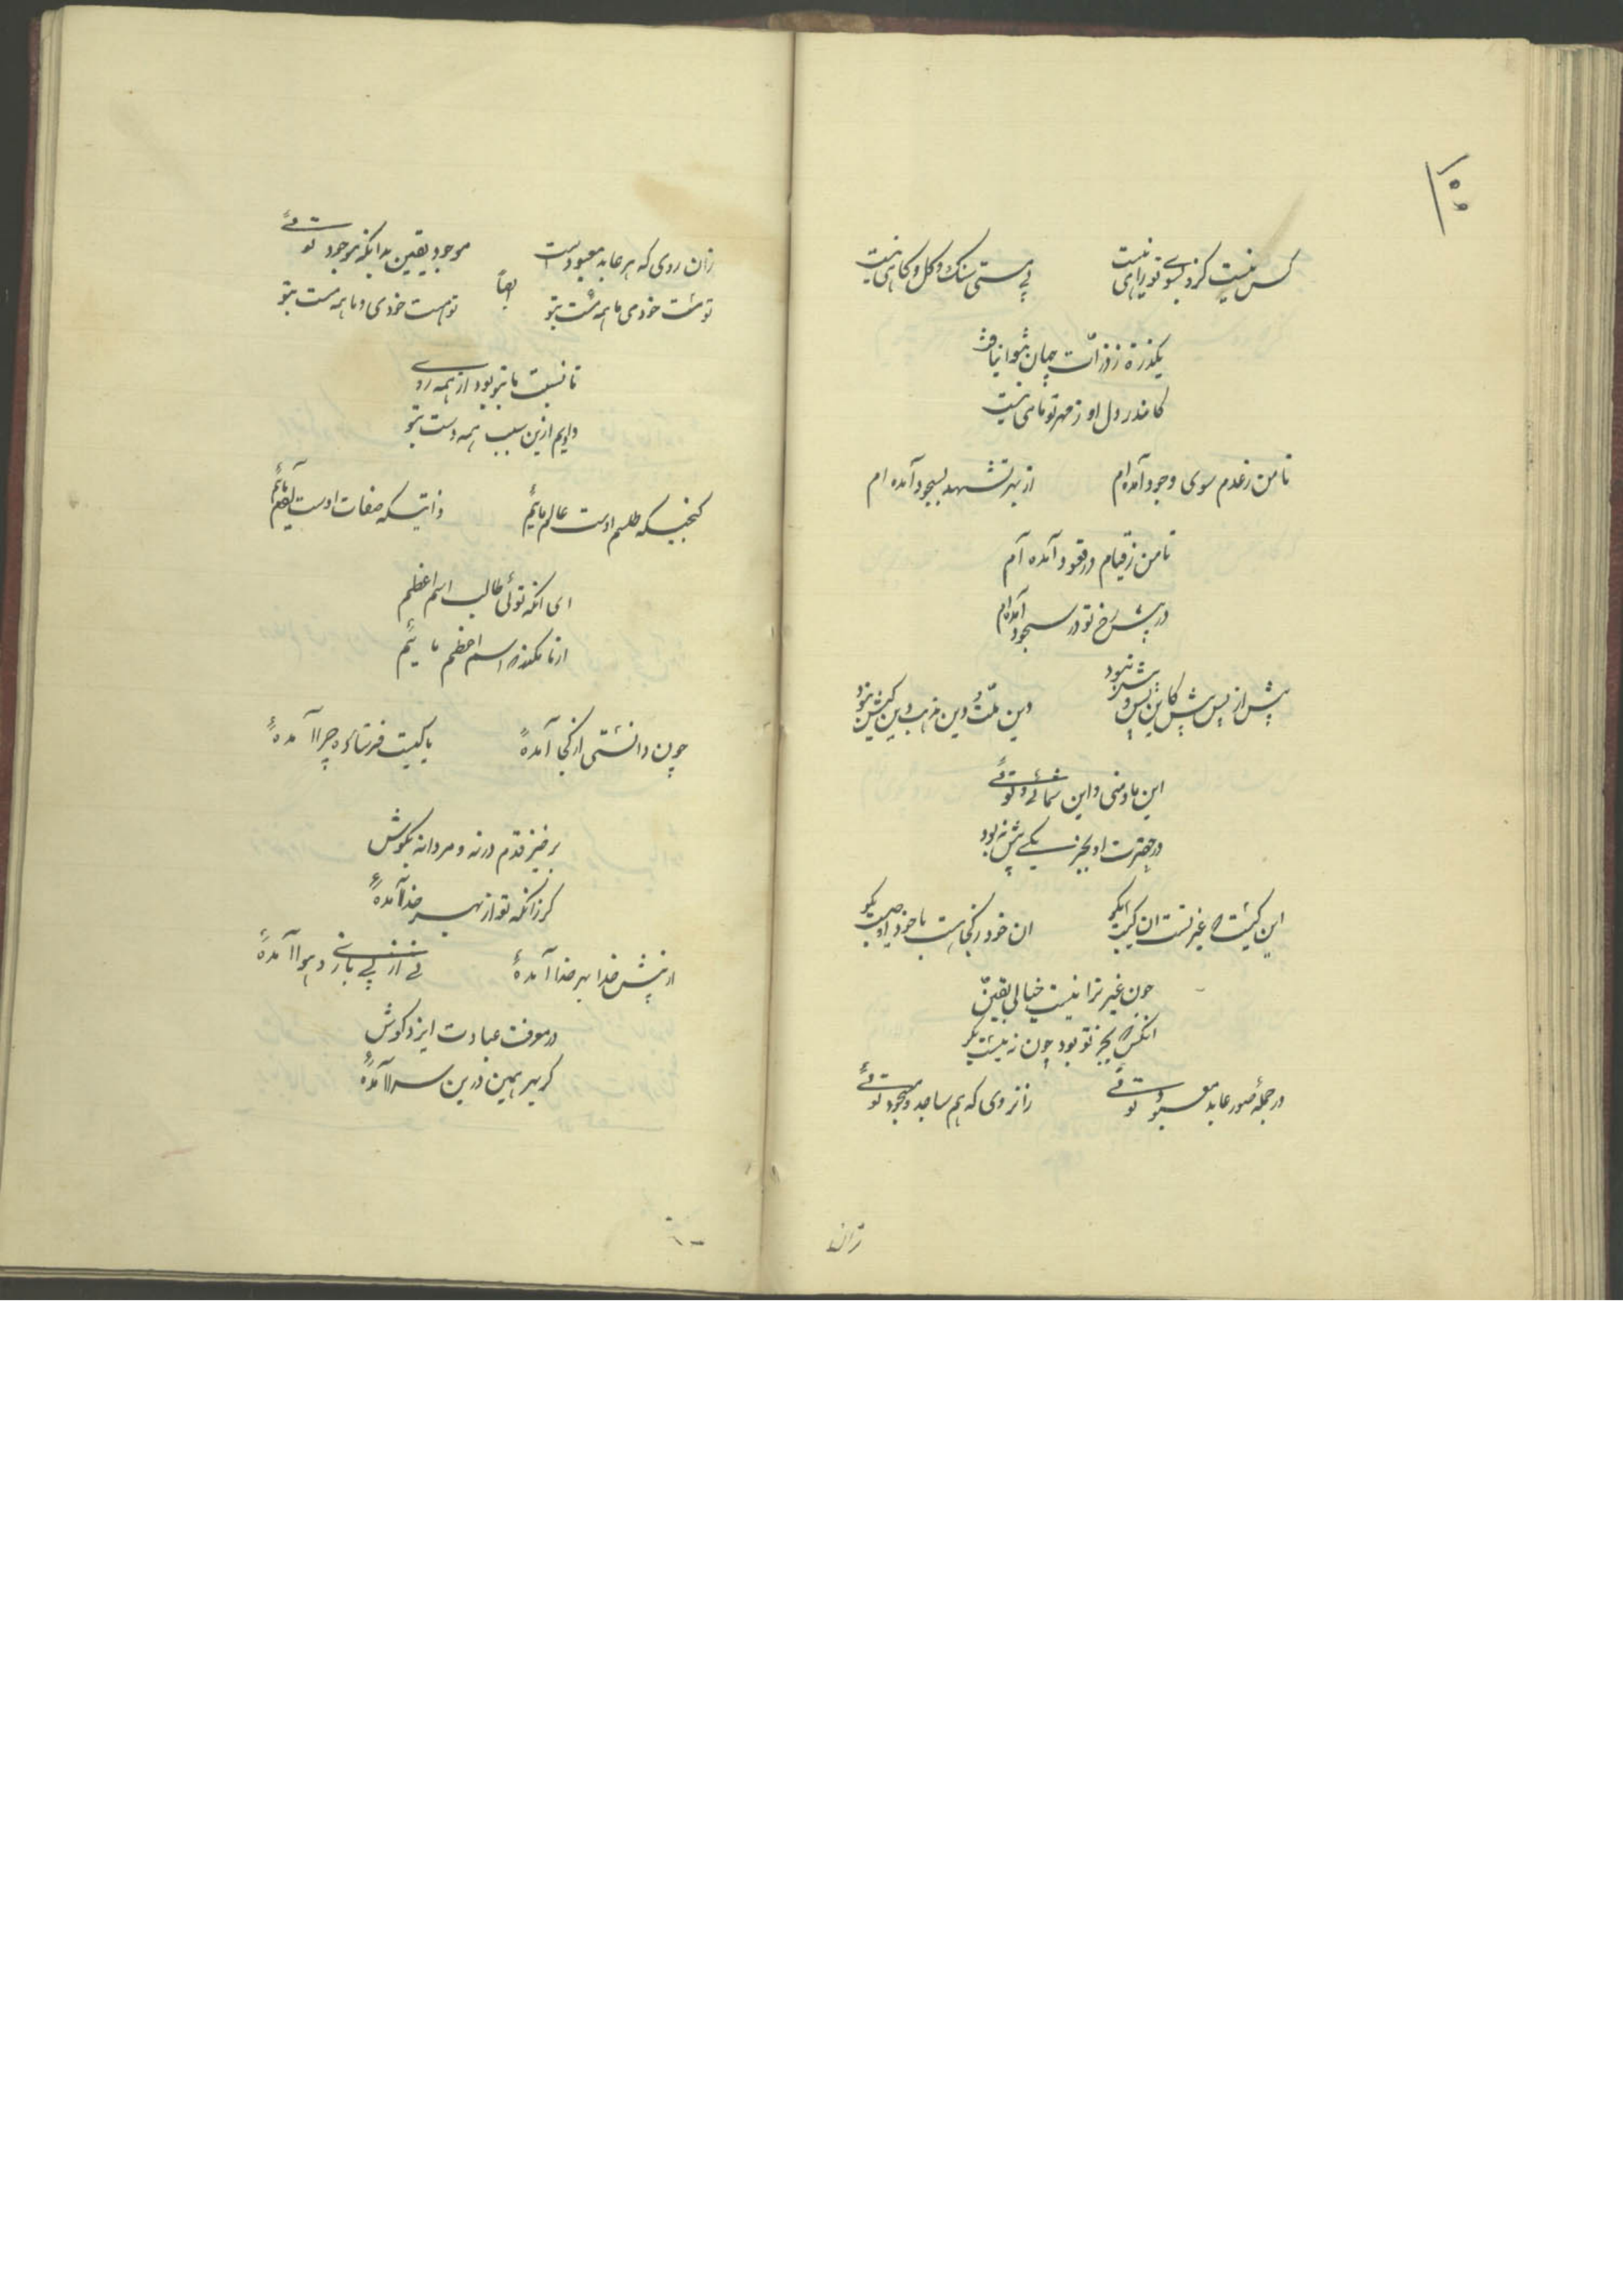 ۱۵۵
کس نیست کزو بسوی تو راهی نیست
بی هستی سنک و کل و کاهی نیست
یکذره ز ذرات جهان نتوان یافت
کاندر دل او ز مهر تو ماهی نیست
تا من ز عدم سوی وجود آمده ام
از بهر تشهد بسجود آمده ام
تا من ز قیام در قعود آمده ام
در پیش رخ تو در سجود آمده ام
پیش از پس و پیش کاین پس و پیش نبود
وین ملت و دین مذهب و این کیش نبود
این ما و منی و این شمائی و توئی
در حضرت او بجز یکی پیش نبود
این کیست غیر تست ان کیست بگو
ان خود ز کجاست یا خود او چیست بگو
چون غیر ترا نیست خیالی بیقین
انکس که بجز تو بود چون زیست بگو
در جمله صور عابد و معبود توئی
زانروی که هم ساجد و مسجود توئی
زان
زان روی که هر عابد معبودست
موجود یقین بدانکه موجود توئی
ایضاً
تو مست خودی ما همه مست بتو
تو هست خودی و ما همه هست بتو
تا نسبت ما بتو بود از همه روی
دادیم ازین سبب همه دست بتو
کنجیکه طلسم اوست عالم مائیم
ذاتیکه صفات اوست آدم مائیم
ای انکه توئی طالب اسم اعظم
از ما مکذر که اسم اعظم مائیم
چون دانستی از کجا آمدهٔ
یا کیست فرستاده چرا آمدهٔ
برخیز قدم در نه و مردانه بکوش
کر زانکه تو از بهر خدا آمدهٔ
از پیش خدا بهر خدا آمدهٔ
نی از پی بازی و هوا آمدهٔ
در معرفت عبادت ایزد کوش
کز بهر همین درین سرا آمدهٔ